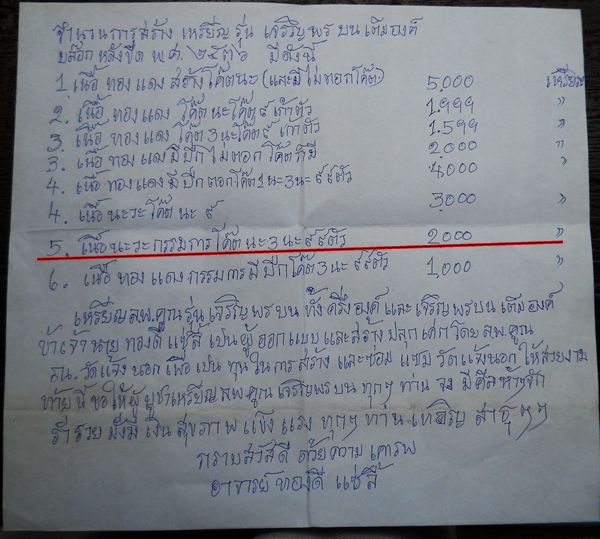 จำนวนการสร้าง เหรียญ รุ่น เจริญพร บน เต็มองค์
บล๊อก หลังขีด พ.ศ. ๒๕๓๖ มีดังนี้
1. เนื้อ ทองแดง สร้างโค๊ตนะ (และมีไม่ตอกโค๊ต) 5,000 เหรียญ
2. เนื้อ ทองแดง โค๊ต นะโค๊ต ๙ เก้าตัว 1.999 "
3. เนื้อ ทองแดง โค๊ต 3 นะโค๊ต ๙ เก้าตัว 1.599 "
3. เนื้อ ทองแดงมีปีก ไม่ตอก โค๊ตก็มี 2,000 "
4. เนื้อ ทองแดงมีปีกตอกโค๊ต 1 นะ 3 นะ ๙ ๙ตัว 4,000
4. เนื้อ นะวะโค๊ต นะ ๙ 3,000 "
5. เนื้อนะวะกรรมการโค๊ต นะ 3 นะ ๙ ๙ตัว 2,000 "
6. เนื้อ ทองแดง กรรมการมีปีกโค๊ต 3 นะ ๙ ๙ตัว 1,000 "
เหรียญ ลพ.คูณ รุ่น เจริญพร บน ทั้ง ครึ่งองค์ และ เจริญพรบน เต็มองค์
ข้าเจ้านาย ทองดี แซ่ลี้ เป็นผู้ ออกแบบ และสร้าง ปลุกเศกโดย ลพ.คูณ
ณ. วัดแจ้งนอก เพื่อ เป็น ทุน ในการ สร้าง และซ่อม แซม วัดแจ้งนอก ให้สวยงาม
ท้ายนี้ ขอให้ผู้ บูชาเหรียญ ลพ.คูณ เจริญพร บน ทุกๆ ท่าน จง มีศีลห้าๆจัก
ร่ำรวย มั่งมี เงิน สุขภาพ แข็ง แรง ทุกๆ ท่าน เทอญ สาธุ ๆๆ
กราบสวัสดี ด้วยความ เคารพ
อาจารย์ ทองดี แซ่ลี้